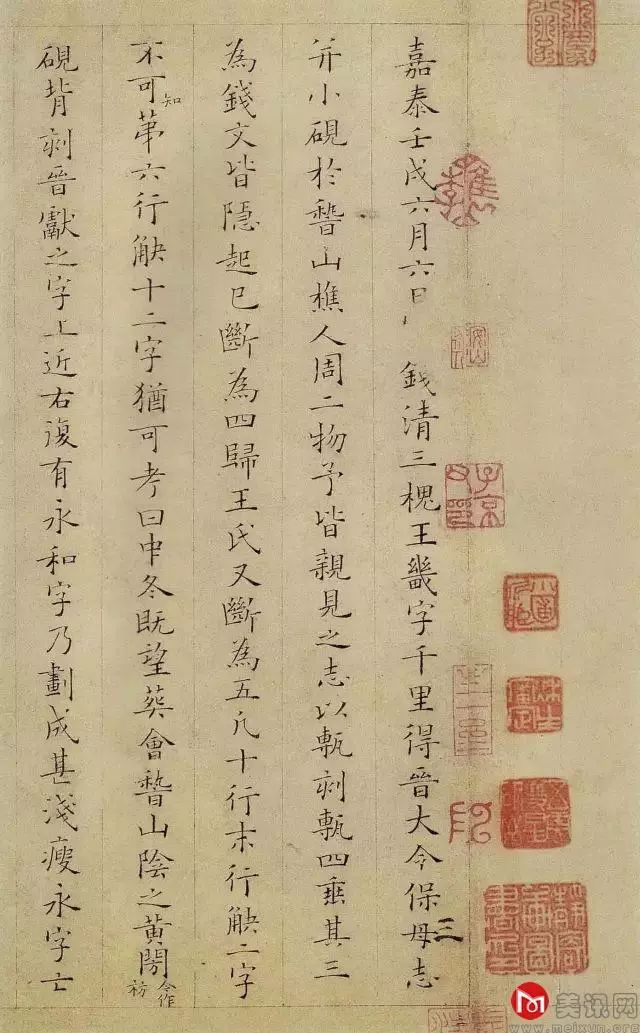 嘉泰壬戌六月六日錢清三槐王畿字千里得晉大令保母志三
并小硯於稽山樵人周二物予皆親見之志以甎刺甎四垂其三
為錢文皆隱起已斷為四歸王氏又斷為五凡十行末行缺二字
不可知第六行缺十二字猶可考曰中冬既望葬會稽山陰之黃閍合作祊
硯背刺晉獻之字上近右復有永和字乃劃成甚淺瘦永字亡
子京
美讯网
www.meixun.org